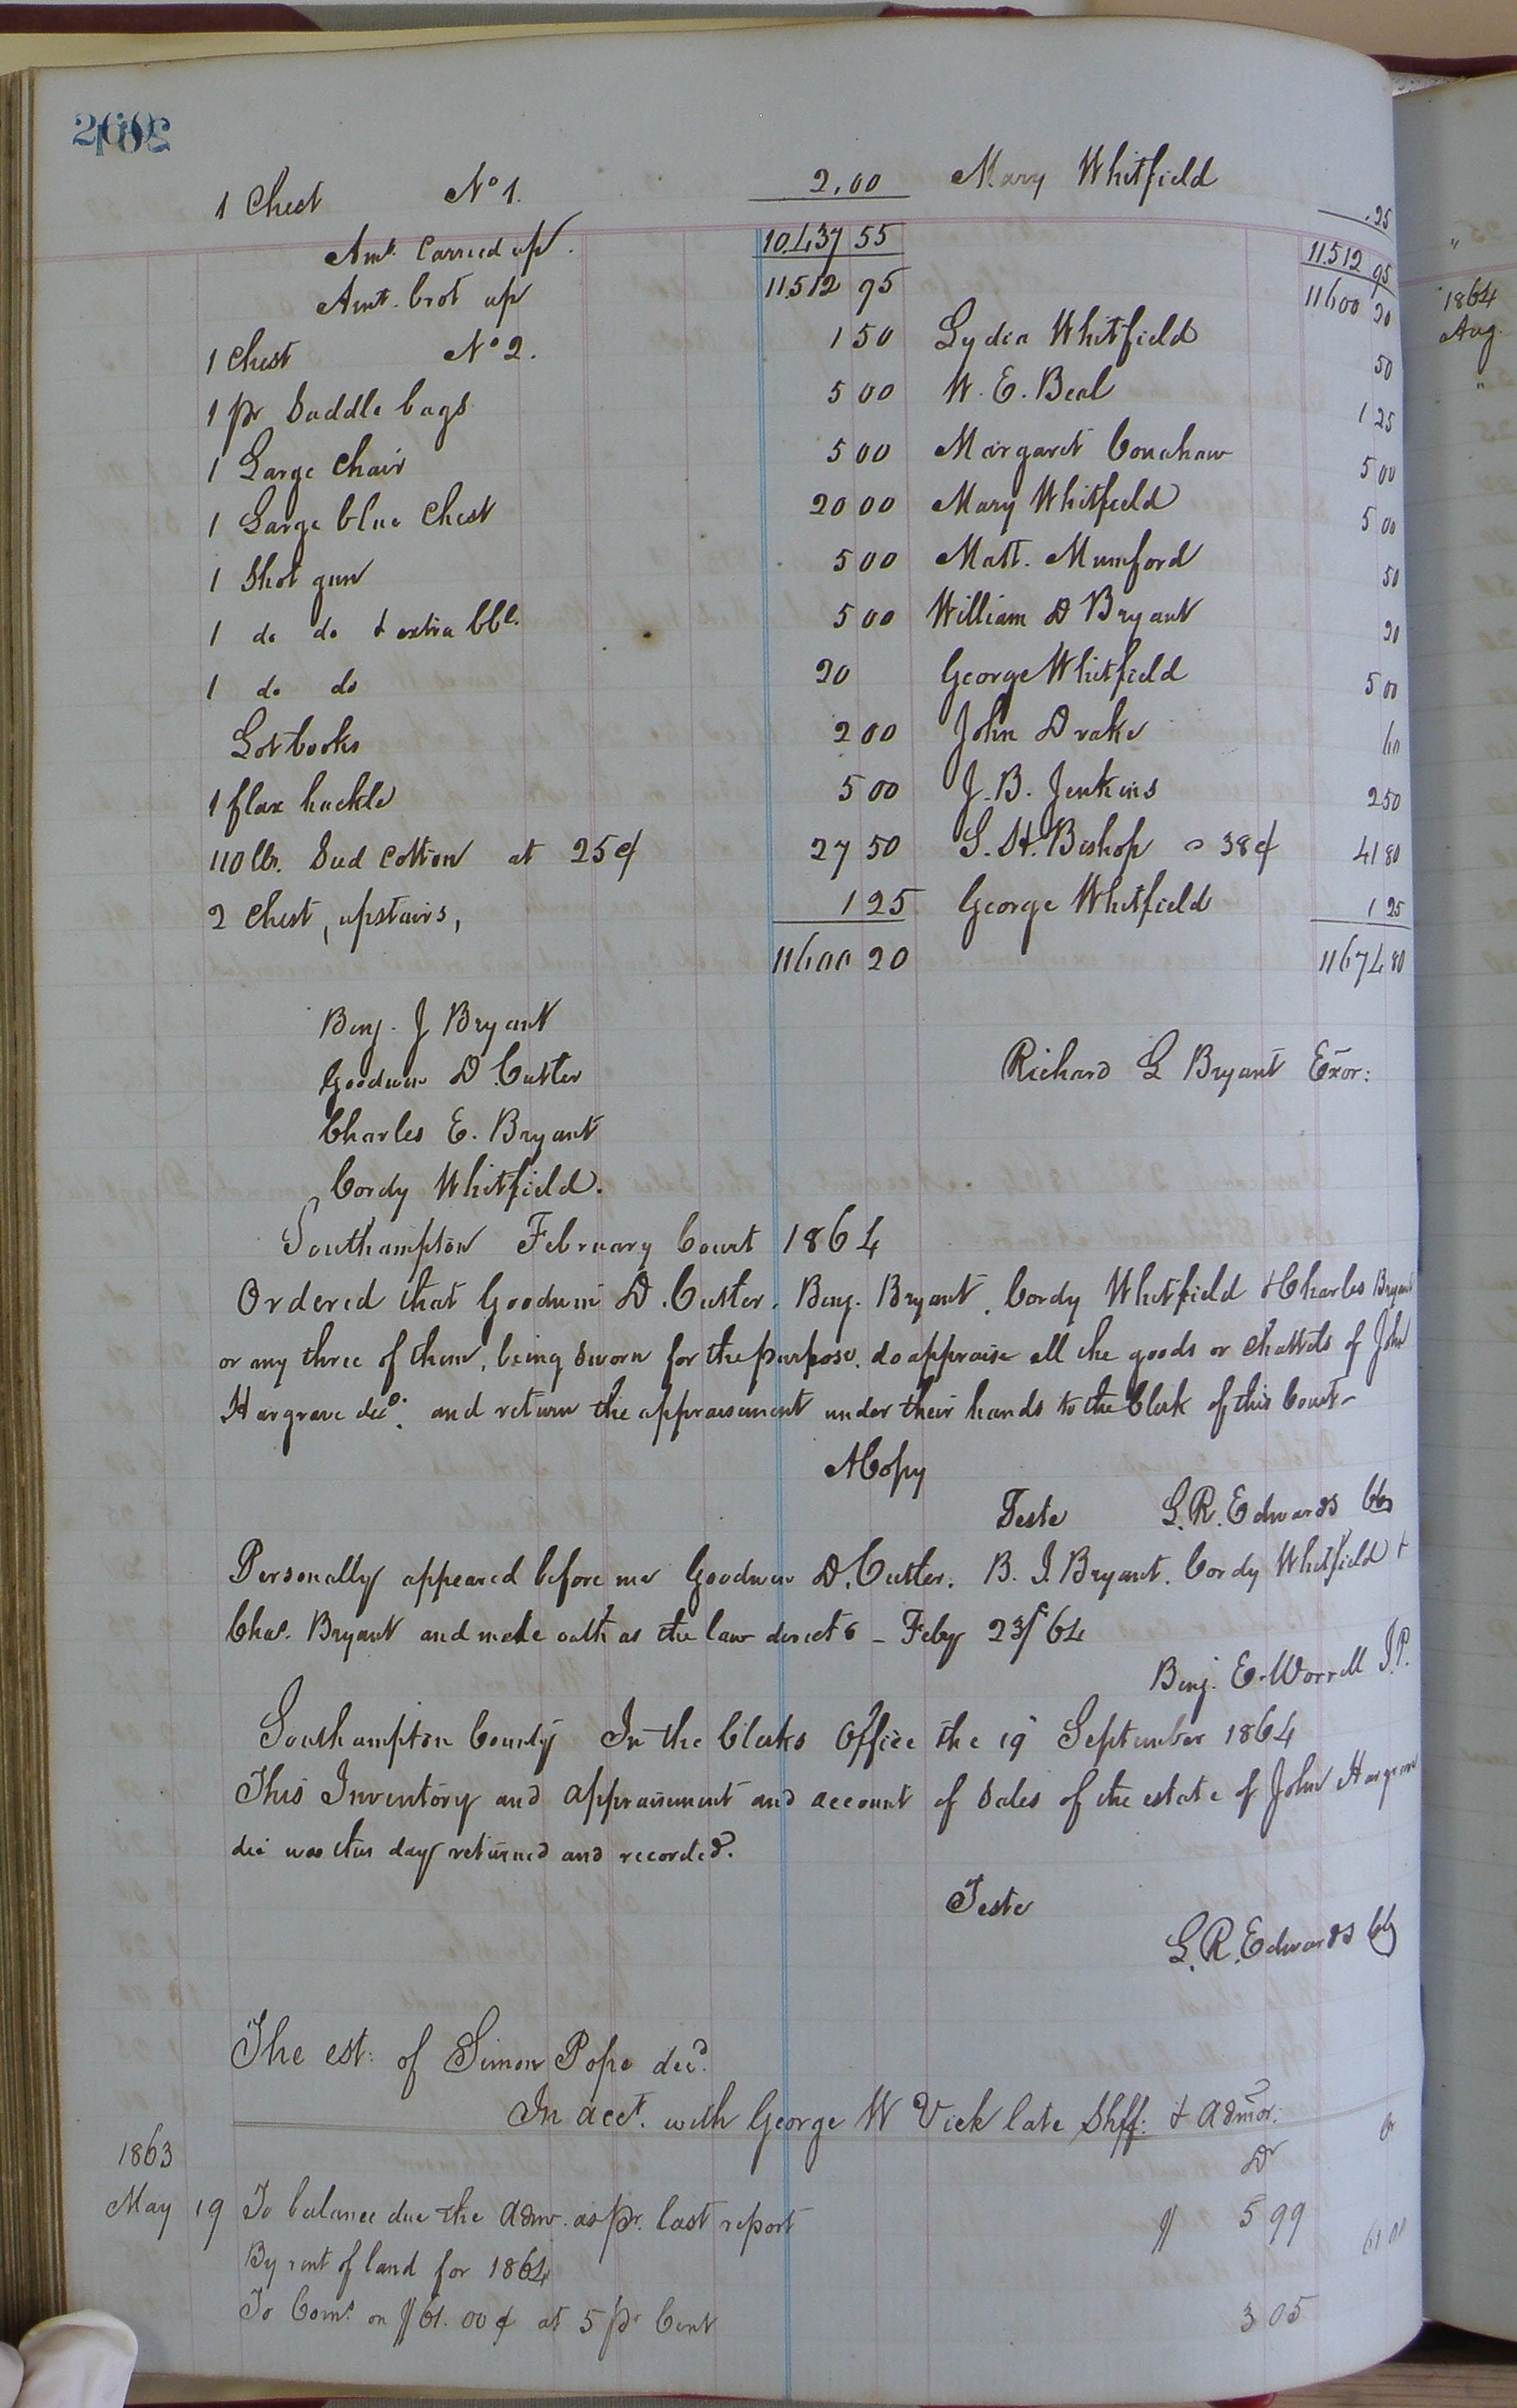 1 Chest No 1. 2.00 Mary Whitfield .25
Amt. Carried up. 10.437 55 11.512 95
Amt. brot up 11512 95 11600 20
1 Chest No 2. 1 50 Lydia Whitfield 50
1 pr Saddle bags 5 00 W. E. Beal 1 25
1 Large Chair 5 00 Margaret 5 00
1 Large blue Chest 20 00 Mary Whitfield 5 00
1 Shot gun 5 00 Matt. Mumford 50
1 do do & extra bbl. 5 00 William D Bryant 20
1 do do 20 George Whitfield 5 00
Lot books 2 00 John Drake 60
1 flax hackle 5 00 J. B. Jenkins 2 50
110 lbs. Seed Cotton at 25 ¢ 27 50 S. H. Bishop 38 ¢ 41 80
2 Chest, upstairs, 1 25 George Whitfield 1 25
11600 20 11674 80
Benj. J Bryant
Goodwin D. Cutler Richard L Bryant Exor:
Charles E. Bryant
Cordy Whitfield.
Southampton February Court 1864
Ordered that Goodwin D. Cutler, Benj. Bryant, Cordy Whitfield & Charles Bryant
or any three of them, being sworn for the purpose, do appraise all the goods or chattels of John
Hargrave decd. and return the appraisement under their hands to the Clerk of this Court –
A Copy
Teste L. R. Edwards
Personally appeared before me Goodwin D. Cutler, B. J. Bryant, Cordy Whitfield &
Chas. Bryant and made oath as the law directs – Feby 23/64
Benj. E. Worrell J.P.
Southampton County In the Clerks Office the 19 September 1864
This Inventory and appraisement and account of Sales of the estate of John Hargrave
dec was this day returned and recorded.
Teste
L. R. Edwards
The est: of Simon Pope decd.
In acct. with George W Vick late Shff: & Admor:
1863 Dr Cr
May 19 To balance due the Admr. as pr. last report $ 5 99
By rent of land for 1864 61 00
To Coms. on $61.00 ¢ at 5 pr Cent 3 05
1864
Aug.